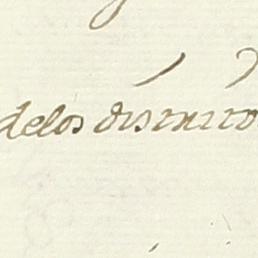 delos distrito